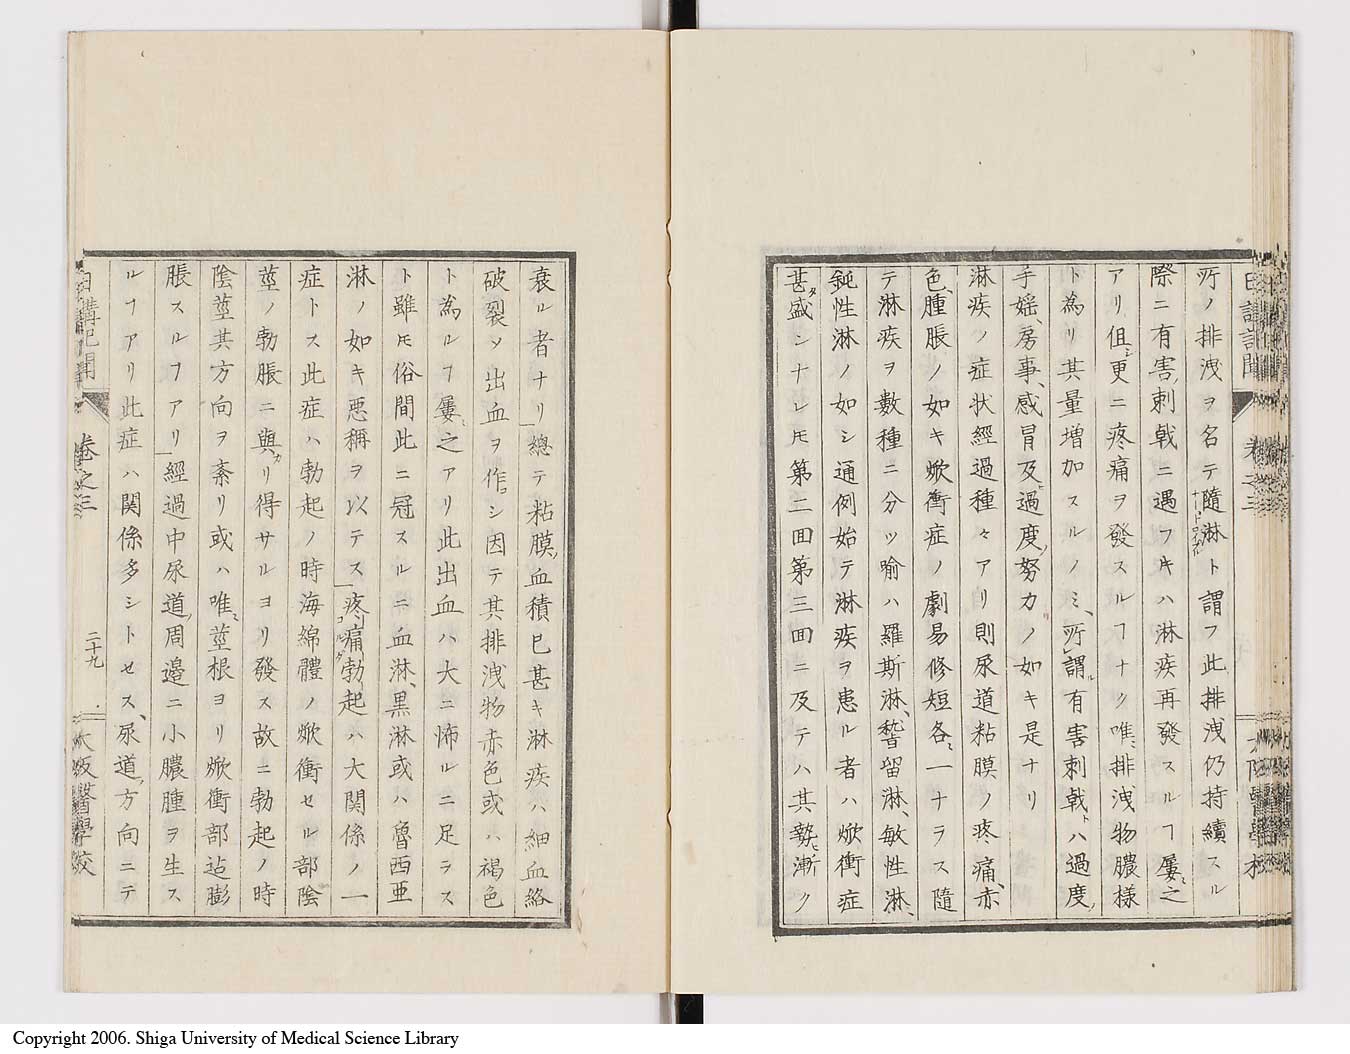 日講記聞 卷之三 大阪醫學校
所ノ排洩ヲ名テ隨淋ト謂フ此排洩仍持續スル
際ニ有害刺戟ニ遇フキハ淋疾再發スルヿ屢之
アリ但更ニ疼痛ヲ發スルヿナク唯排洩物膿樣
ト為リ其量增加スルノミ、所謂有害刺戟トハ過度ノ
手婬、房事、感冒及過度ノ努力ノ如キ是ナリ
淋疾ノ症狀經過種々アリ則尿道粘膜ノ疼痛、赤
色、腫脹ノ如キ焮衝症ノ劇易修短各一ナラス隨
テ淋疾ヲ數種ニ分ツ喻ハ羅斯淋、瞽留淋、敏性淋、
鈍性淋ノ如シ通例始テ淋疾ヲ患ル者ハ焮衝症
甚タ盛ンナレ𪜈第二回第三回ニ及テハ其勢漸ク
衰ル者ナリ總テ粘膜血積已甚キ淋疾ハ細血絡
破裂ソ出血ヲ作シ因テ其排洩物赤色或ハ褐色
ト為ルヿ屢之アリ此出血ハ大ニ怖ルニ足ラス
ト雖𪜈俗間此ニ冠スルニ血淋、黑淋或ハ魯西亜
淋ノ如キ惡稱ヲ以テス疼痛勃起ハ大関係ノ一
症トス此症ハ勃起ノ時海綿體ノ焮衝セル部陰
莖ノ勃脹ニ與リ得サルヨリ發ス故ニ勃起ノ時
陰莖其方向ヲ紊リ或ハ唯莖根ヨリ焮衝部迄膨
脹スルヿアリ經過中尿道周邉ニ小膿腫ヲ生ス
ルヿアリ此症ハ関係多シトセス、尿道ノ方向ニテ
日講記聞 卷之三 二十九 大阪醫學校
Copyright 2006. Shiga University of Medical Science Library